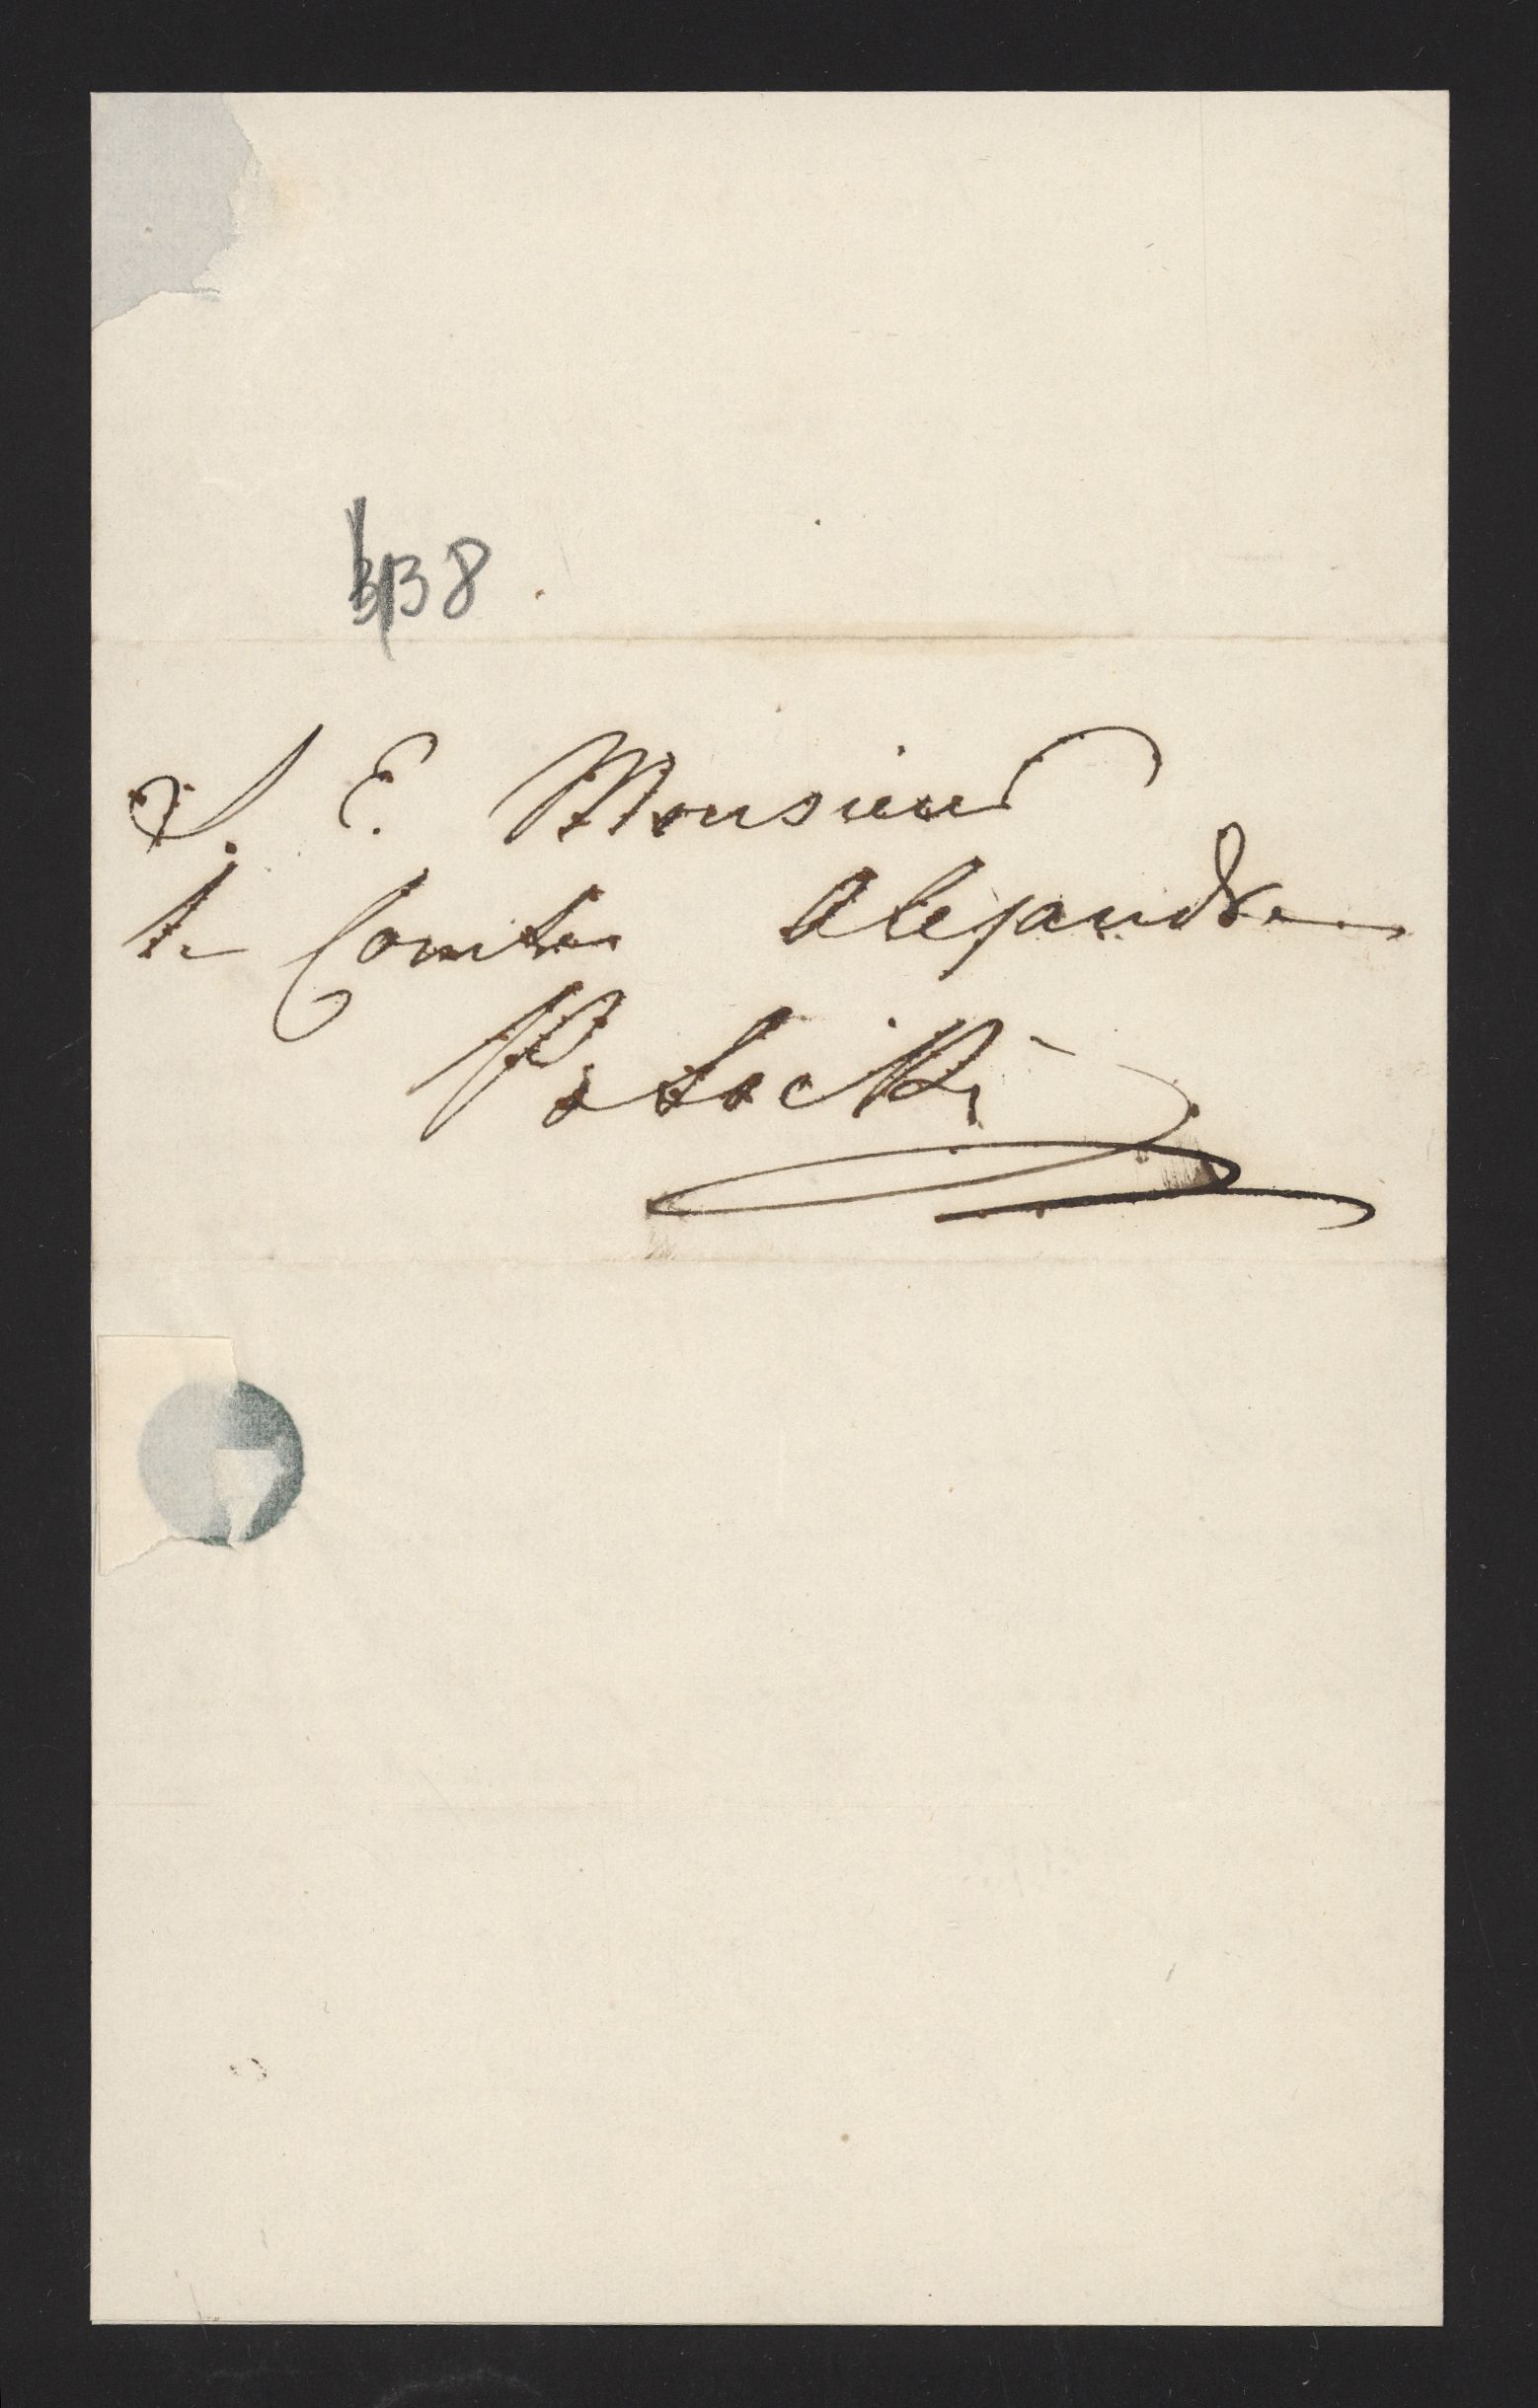 138
S. E. Monsieur
le Comte Alexandre
Potocki